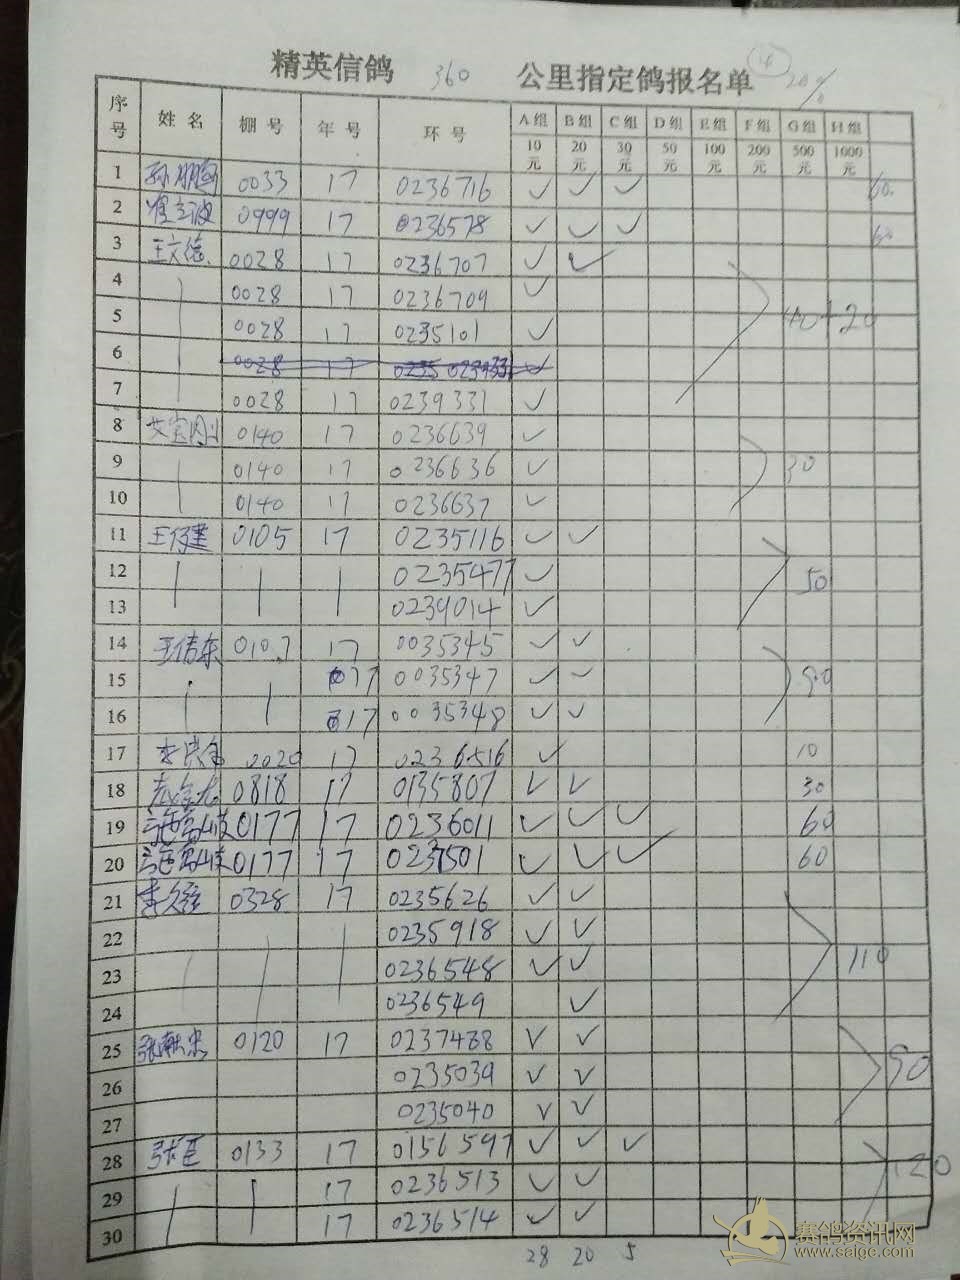 精英信鸽 360 公里指定鸽报名单
序号 姓名 棚号 年号 环号 A组 B组 C组 D组 E组 F组 G组 H组
10元 20元 30元 50元 100元 200元 500元 1000元
1 0033 17 0236716 ✓ ✓ ✓ 60
2 0999 17 0236578 ✓ ✓ ✓ 60
3 王文德 0028 17 0236707 ✓ ✓
4 0028 17 0236709 ✓ 40+20
5 0028 17 0235101 ✓
6 0028 17 ✓
7 0028 17 0239331 ✓
8 0140 17 0236639 ✓
9 0140 17 0236636 ✓ 30
10 0140 17 0236637 ✓
11 0105 17 0235116 ✓ ✓
12 0235477 ✓ 50
13 0239014 ✓
14 0107 17 0035345 ✓ ✓
15 17 0035347 ✓ ✓ 90
16 17 0035348 ✓ ✓
17 0020 17 0236516 ✓ 10
18 0818 17 0135807 ✓ ✓ 30
19 0177 17 0236011 ✓ ✓ ✓ 60
20 0177 17 0237501 ✓ ✓ ✓ 60
21 0328 17 0235626 ✓ ✓
22 0235918 ✓ ✓
23 0236548 ✓ ✓ 110
24 0236549 ✓
25 0120 17 0237488 ✓ ✓
26 0235039 ✓ ✓ 90
27 0235040 ✓ ✓
28 张臣 0133 17 0156597 ✓ ✓ ✓
29 17 0236513 ✓ ✓ 120
30 17 0236514 ✓ ✓
28 20 5
赛鸽资讯网
www.saigc.com